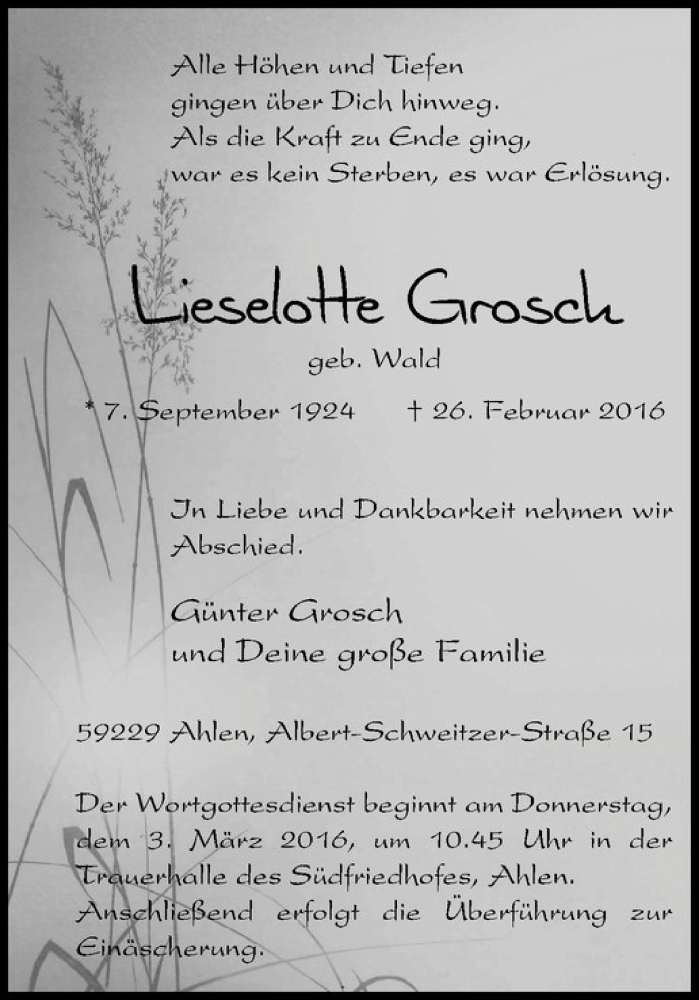 Alle Höhen und Tiefen
gingen über Dich hinweg.
Als die Kraft zu Ende ging,
war es kein Sterben, es war Erlösung.
Lieselotte Grosch
geb. Wald
* 7. September 1924 † 26. Februar 2016
In Liebe und Dankbarkeit nehmen wir
Abschied.
Günter Grosch
und Deine große Familie
59229 Ahlen, Albert-Schweitzer-Straße 15
Der Wortgottesdienst beginnt am Donnerstag,
dem 3. März 2016, um 10.45 Uhr in der
Trauerhalle des Südfriedhofes, Ahlen.
Anschließend erfolgt die Überführung zur
Einäscherung.